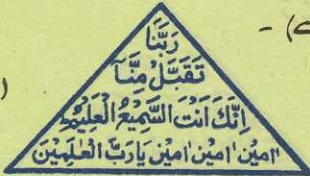 رَبَّنَا
تَقَبَّلْ مِنَّآ
اِنَّكَ اَنْتَ السَّمِيْعُ الْعَلِيْمُ
اٰمِيْن اٰمِيْن اٰمِيْن يَا رَبَّ الْعٰلَمِيْن